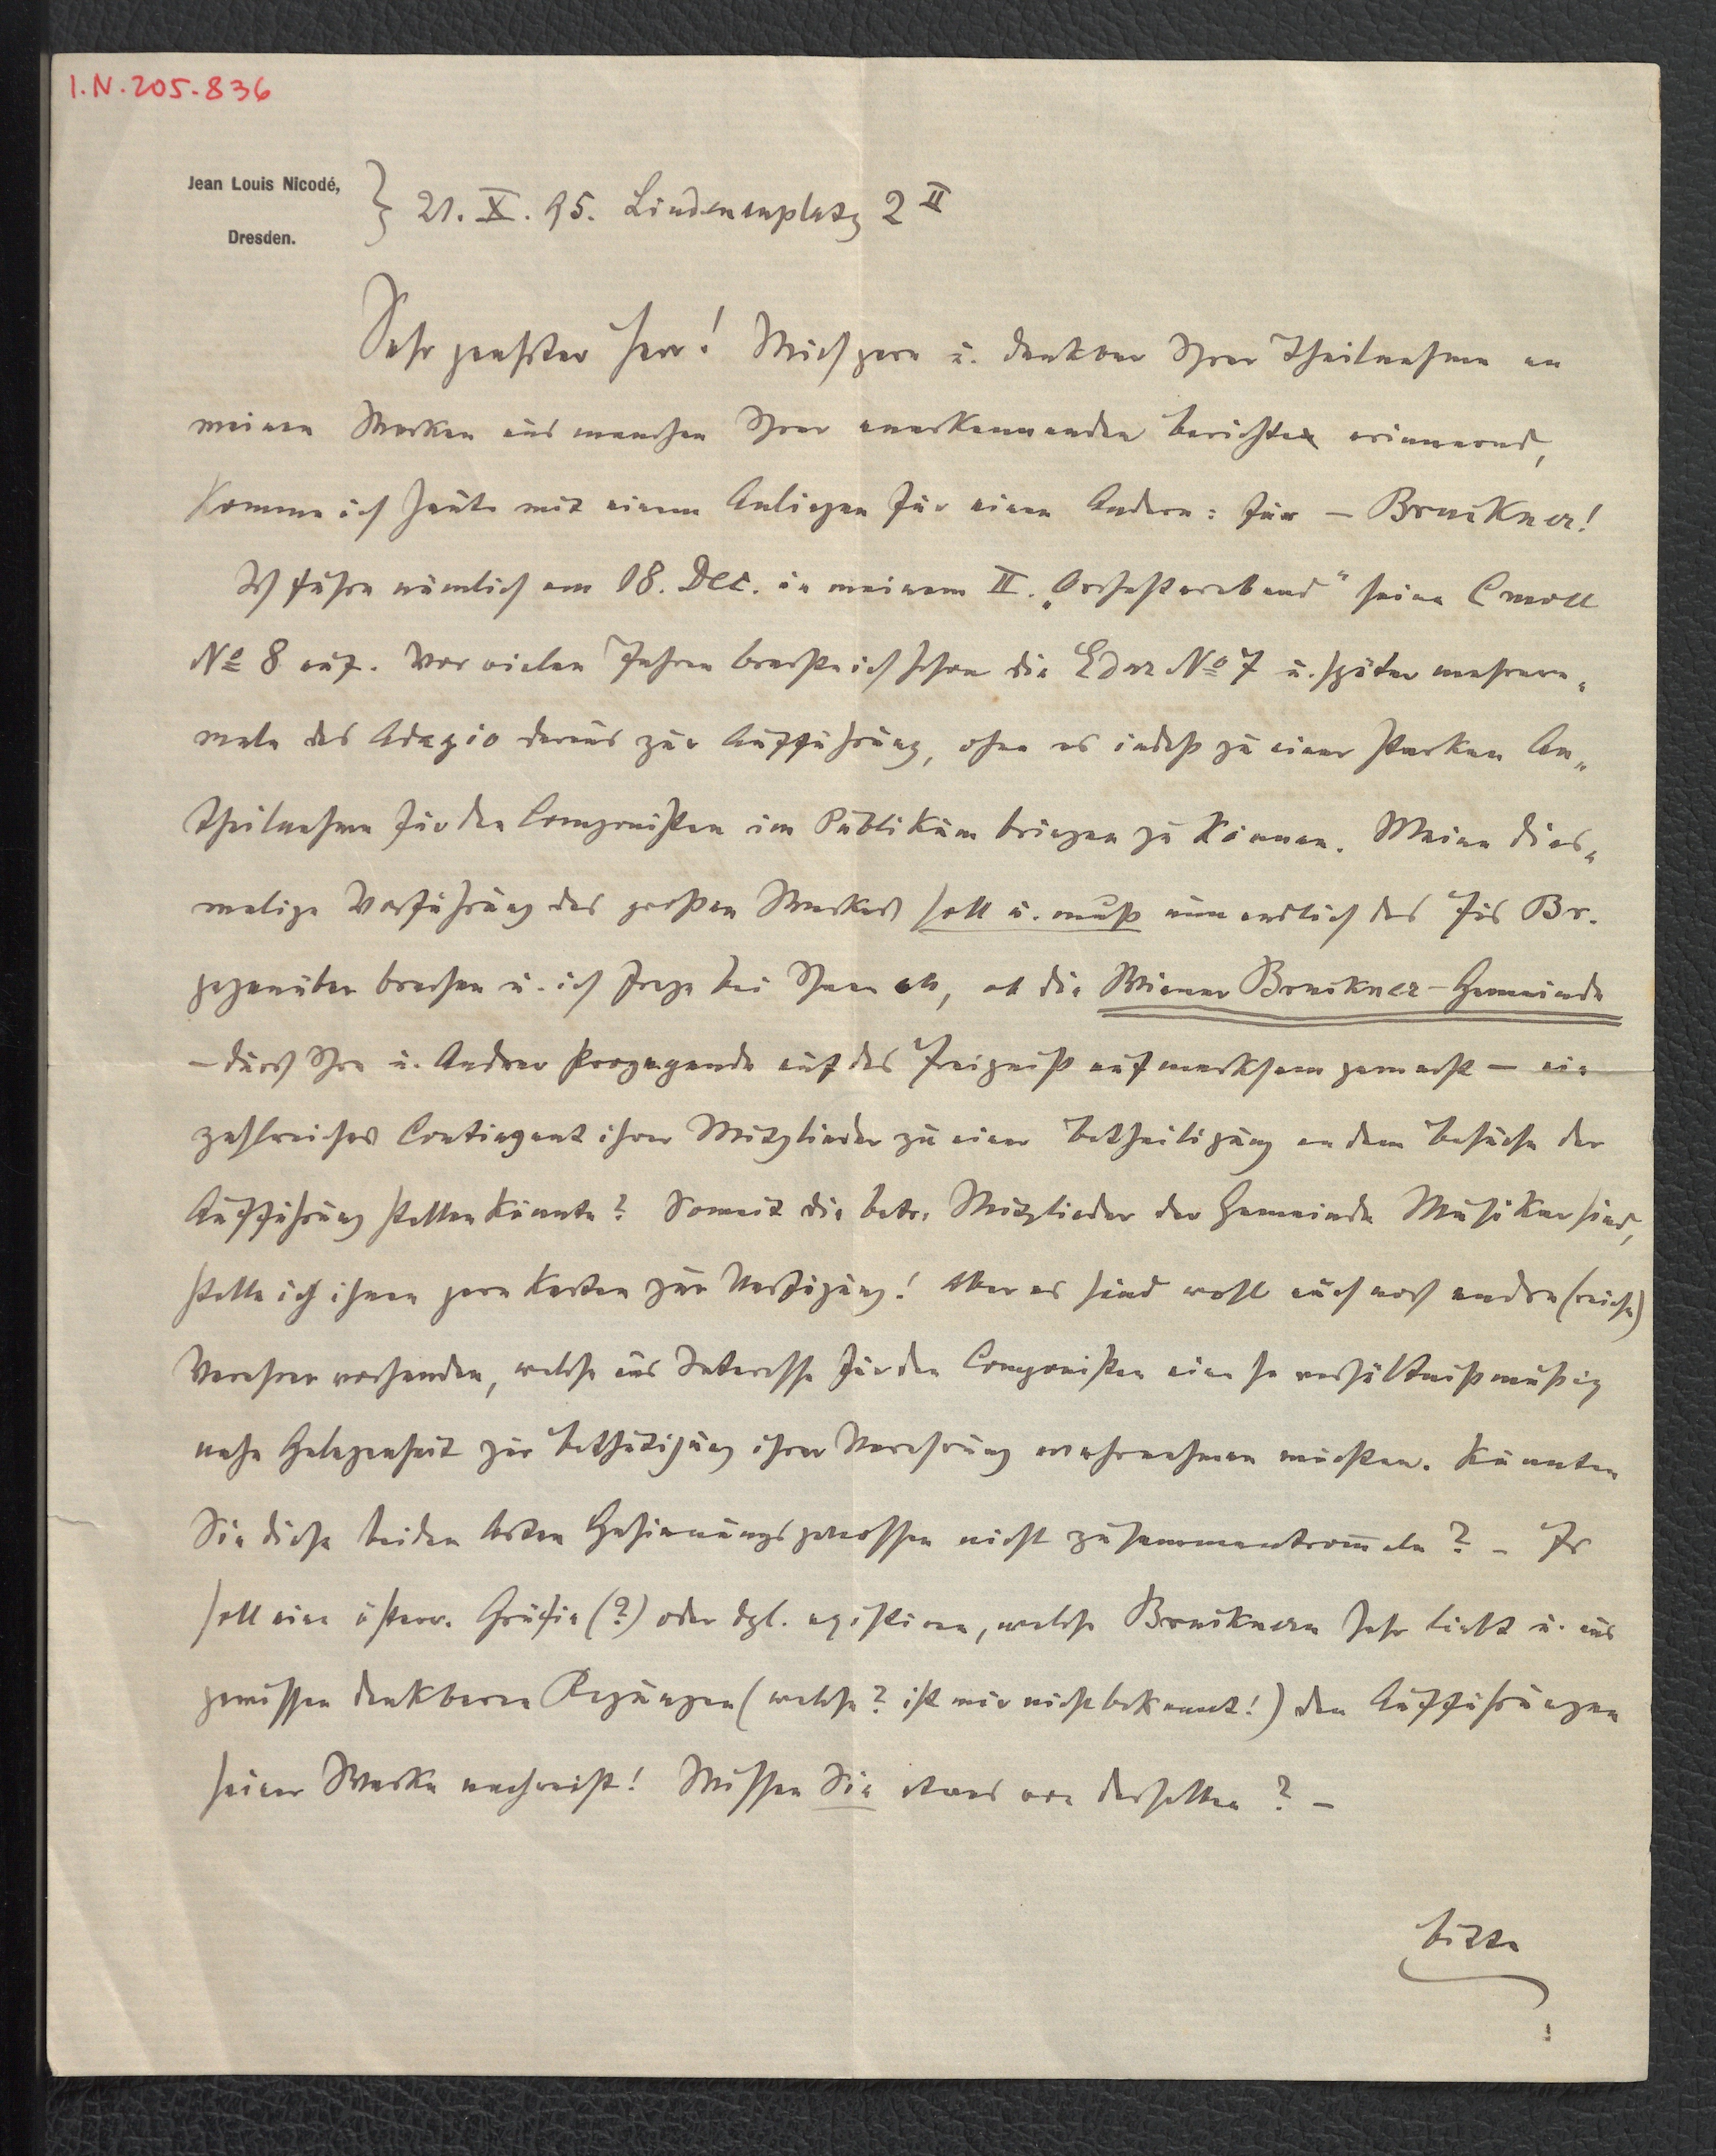 I.N. 205.836
Jean Louis Nicodé,
Dresden.
} 21. X. 95. Lindenauplatz 2 II
Sehr geehrter Herr! Mich gern u. dankbar Ihrer Theilnahme an
meinen Werken aus manchen Ihrer anerkennenden Berichte erinnernd,
komme ich heute mit einem Anliegen für einen Andern: für – Bruckner!
Ich führe nämlich am 18. Dec. in meinem II. „Orchesterabend" seine Cmoll
No 8 auf. Vor vielen Jahren brachte ich schon die Edur No 7 u. später mehrere„
male das Adagio daraus zur Aufführung, ohne es indeß zu einer starken An„
theilnahme für den Componisten im Publikum bringen zu können. Meine dies„
malige Vorführung des großen Werkes soll u. muß nun endlich das Eis Br.
gegenüber brechen u. ich frage bei Ihnen an, ob die Wiener Bruckner-Gemeinde
– durch Ihre u. Andrer Propaganda auf das Ereigniß aufmerksam gemacht – ein
zahlreiches Contingent ihrer Mitglieder zu einer Betheiligung an dem Besuche der
Aufführung stellen könnte? Soweit die betr. Mitglieder der Gemeinde Musiker sind,
stelle ich ihnen gern Karten zur Verfügung! Aber es sind wohl auch noch andre (reiche)
Verehrer vorhanden, welche aus Interesse für den Componisten eine so verhältnißmäßig
nahe Gelegenheit zur Bethätigung ihrer Verehrung wahrnehmen möchten. Könnten
Sie diese beiden Arten Gesinnungsgenossen nicht zusammentrom̄eln? – Es
soll eine österr. Gräfin (?) oder dgl. existiren, welche Brucknern sehr liebt u. aus
gewissen dankbaren Regungen (welche? ist mir nicht bekannt!) den Aufführungen
seiner Werke nachreist! Wissen Sie etwas von derselben? –
bitte
!